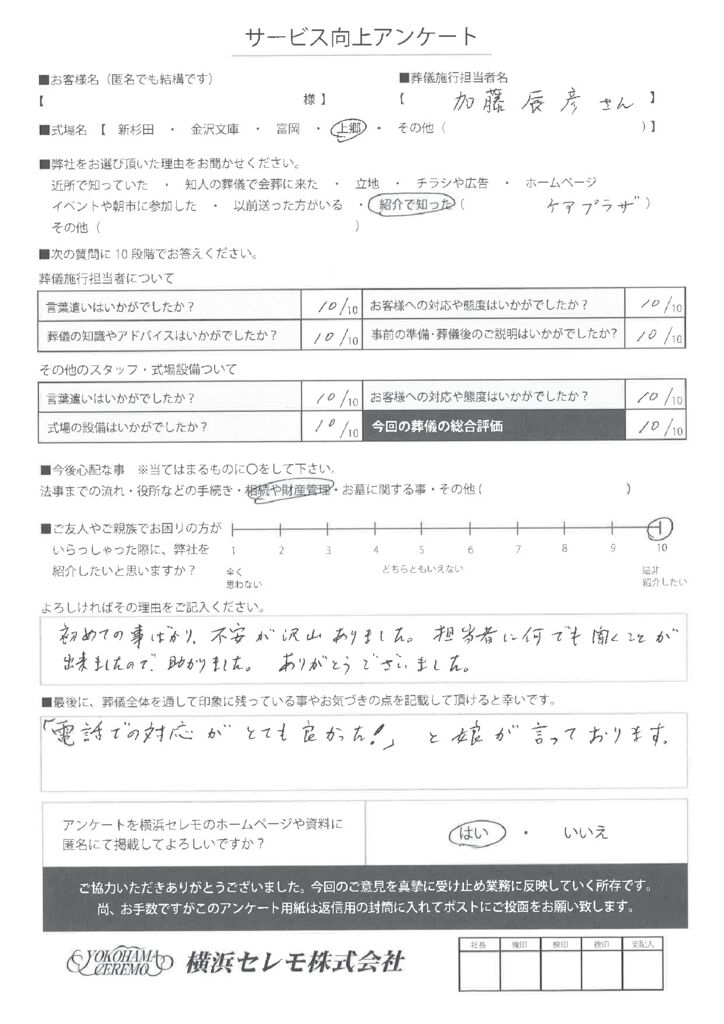 サービス向上アンケート
■お客様名（匿名でも結構です） ■葬儀施行担当者名
【 様 】 【 加藤辰彦さん 】
■式場名 【 新杉田 ・ 金沢文庫 ・ 富岡 ・ 上郷 ・ その他（ ）】
■弊社をお選び頂いた理由をお聞かせください。
近所で知っていた ・ 知人の葬儀で会葬に来た ・ 立地 ・ チラシや広告 ・ ホームページ
イベントや朝市に参加した ・ 以前送った方がいる ・ 紹介で知った（ ケアプラザ ）
その他（ ）
■次の質問に 10 段階でお答えください。
葬儀施行担当者について
言葉遣いはいかがでしたか？ 10/10 お客様への対応や態度はいかがでしたか？ 10/10
葬儀の知識やアドバイスはいかがでしたか？ 10/10 事前の準備・葬儀後のご説明はいかがでしたか？ 10/10
その他のスタッフ・式場設備ついて
言葉遣いはいかがでしたか？ 10/10 お客様への対応や態度はいかがでしたか？ 10/10
式場の設備はいかがでしたか？ 10/10 今回の葬儀の総合評価 10/10
■今後心配な事 ※当てはまるものに〇をして下さい。
法事までの流れ・役所などの手続き・相続や財産管理・お墓に関する事・その他（ ）
■ご友人やご親族でお困りの方が
いらっしゃった際に、弊社を
紹介したいと思いますか？
1 2 3 4 5 6 7 8 9 10
全く どちらともいえない 是非
思わない 紹介したい
よろしければその理由をご記入ください。
初めての事ばかり、不安が沢山ありました。担当者に何でも聞くことが
出来ましたので、助かりました。ありがとうございました。
■最後に、葬儀全体を通して印象に残っている事やお気づきの点を記載して頂けると幸いです。
「電話での対応がとても良かった！」と娘が言っております。
アンケートを横浜セレモのホームページや資料に
匿名にて掲載してよろしいですか？
はい ・ いいえ
ご協力いただきありがとうございました。今回のご意見を真摯に受け止め業務に反映していく所存です。
尚、お手数ですがこのアンケート用紙は返信用の封筒に入れてポストにご投函をお願い致します。
YOKOHAMA
CEREMO
横浜セレモ株式会社
社長 検印 検印 検印 支配人